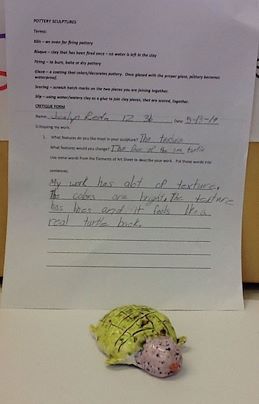 POTTERY SCULPTURES
Terms:
Kiln – an oven for firing pottery
Bisque – clay that has been fired once – no water is left in the clay
Firing – to burn, bake or dry pottery
Glaze – a coating that colors/decorates pottery. Once glazed with the proper glaze, pottery becomes
waterproof.
Scoring – scratch hatch marks on the two pieces you are joining together.
Slip – using water/watery clay as a glue to join clay pieces, that are scored, together.
CRITIQUE FORM
Name Date
Critiquing my work.
1. What features do you like most in your sculpture? The texture
What features would you change? The face of the sea turtle
Use some words from the Elements of Art Sheet to describe your work. Put those words into
sentences.
My work has alot of texture.
The colors are bright. The texture
has lines and it feels like a
real turtle back.